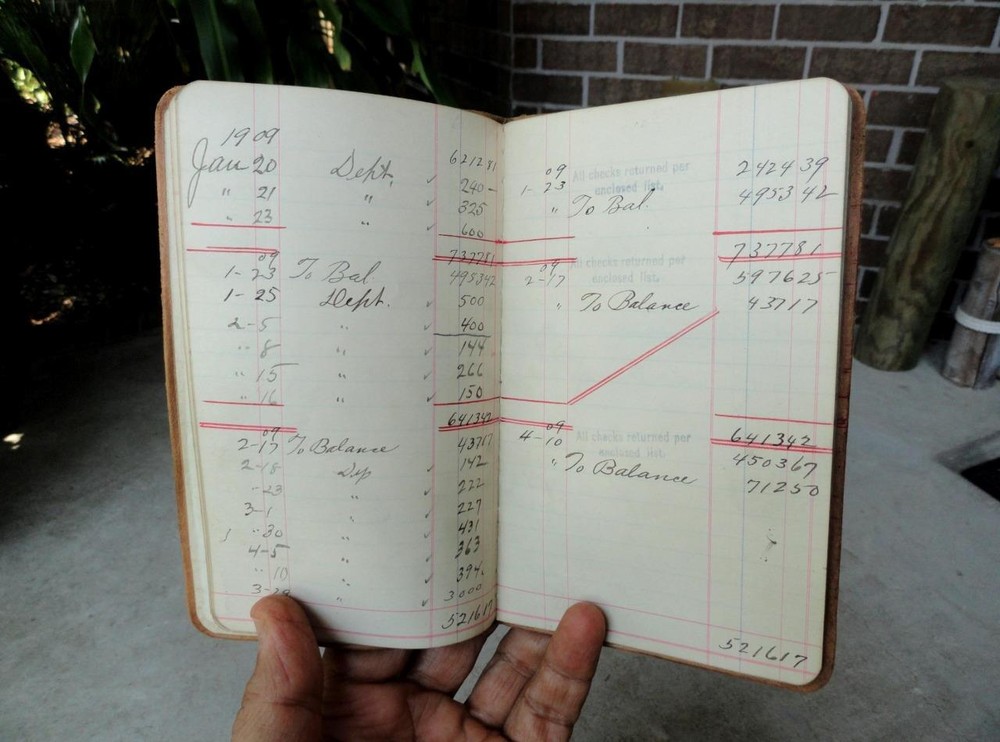 1909
Jan 20 Dept. ✓ 621281
" 21 " ✓ 240 -
" 23 " ✓ 325
600
737781
09
1-23 To Bal. 495342
1-25 Dept. ✓ 500
2-5 " ✓ 400
" 8 " ✓ 144
" 15 " ✓ 266
" 16 " ✓ 150
641342
09
2-17 To Balance 43717
2-18 Dep ✓ 142
-23 " ✓ 222
3-1 " ✓ 227
" 30 " ✓ 431
4-5 " ✓ 363
" 10 " ✓ 394
3-29 " ✓ 3000
521617
09
1-23 All checks returned per enclosed list. 242439
" To Bal. 495342
737781
09
2-17 All checks returned per enclosed list. 597625
" To Balance 43717
641342
09
4-10 All checks returned per enclosed list. 450367
" To Balance 71250
521617